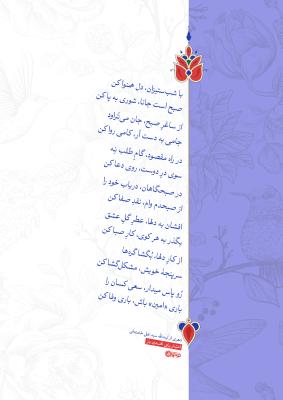 با شب‌ستیزان، دل هم‌نوا کن
صبح است جانا، شوری به پا کن
از ساغر صبح، جان می‌تراود
جامی به دست آر، کامی روا کن
در راه مقصود، گام طلب نه
سوی در دوست، روی دعا کن
در صبحگاهان، دریاب خود را
از صبحدم وام، نقد صفا کن
افشان به دل‌ها، عطر گل عشق
بگذر به هر کوی، کار صبا کن
از کار دل‌ها، بگشا گره‌ها
سرپنجهٔ خویش، مشکل‌گشا کن
رو پاس میدار، سعی کسان را
یاری «امین» باش، یاری وفا کن